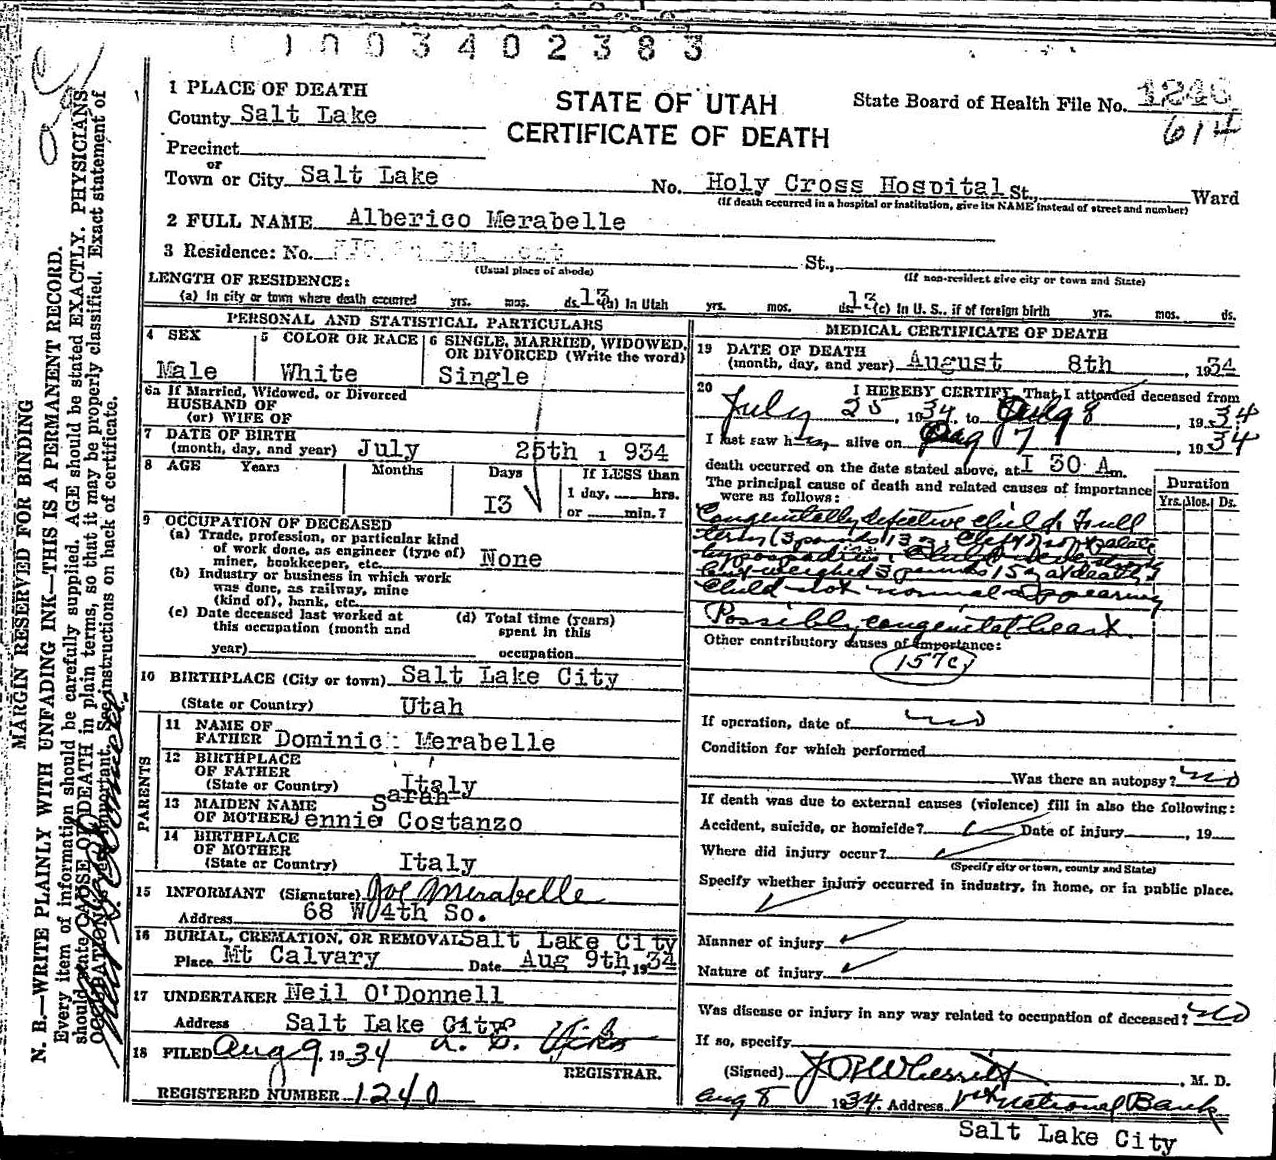 0003402383
1 PLACE OF DEATH
County Salt Lake
STATE OF UTAH
CERTIFICATE OF DEATH
State Board of Health File No. 1246
614
Precinct
or
Town or City Salt Lake No. Holy Cross Hospital St., Ward
(If death occurred in a hospital or institution, give its NAME instead of street and number)
2 FULL NAME Alberico Merabelle
3 Residence: No. St.,
(Usual place of abode) (If non-resident give city or town and State)
LENGTH OF RESIDENCE:
(a) In city or town where death occurred yrs. mos. ds. 13 (b) In Utah yrs. mos. ds. 13 (c) In U. S., if of foreign birth yrs. mos. ds.
PERSONAL AND STATISTICAL PARTICULARS
4 SEX
Male
5 COLOR OR RACE
White
6 SINGLE, MARRIED, WIDOWED,
OR DIVORCED (Write the word)
Single
6a If Married, Widowed, or Divorced
HUSBAND OF
(or) WIFE OF
7 DATE OF BIRTH
(month, day, and year) July 25th , 1934
8 AGE Years Months Days If LESS than
13 1 day, hrs.
or min.?
9 OCCUPATION OF DECEASED
(a) Trade, profession, or particular kind
of work done, as engineer (type of)
miner, bookkeeper, etc. None
(b) Industry or business in which work
was done, as railway, mine
(kind of), bank, etc.
(c) Date deceased last worked at
this occupation (month and
year)
(d) Total time (years)
spent in this
occupation
10 BIRTHPLACE (City or town) Salt Lake City
(State or Country) Utah
PARENTS
11 NAME OF
FATHER Dominic Merabelle
12 BIRTHPLACE
OF FATHER
(State or Country) Italy
13 MAIDEN NAME Sarah
OF MOTHER Jennie Costanzo
14 BIRTHPLACE
OF MOTHER
(State or Country) Italy
15 INFORMANT (Signature) Joe Mirabelle
Address 68 W 4th So.
16 BURIAL, CREMATION, OR REMOVAL Salt Lake City
Place Mt Calvary Date Aug 9th, 1934
17 UNDERTAKER Neil O'Donnell
Address Salt Lake City
18 FILED Aug 9, 1934
REGISTRAR.
REGISTERED NUMBER 1240
MEDICAL CERTIFICATE OF DEATH
19 DATE OF DEATH
(month, day, and year) August 8th , 1934
20 I HEREBY CERTIFY, That I attended deceased from
July 25, 1934, to Aug 8, 1934
I last saw h alive on Aug 7, 1934
death occurred on the date stated above, at 1 30 A m.
The principal cause of death and related causes of importance
were as follows:
Duration
Yrs. Mos. Ds.
Congenitally defective child. Full
term (3 pounds 13 oz. Cleft palate
hypospadias. Child
weighed 3 pounds 15 oz at death
Child not normal appearing
Possibly congenital heart
Other contributory causes of importance:
157c
If operation, date of no
Condition for which performed
Was there an autopsy? no
If death was due to external causes (violence) fill in also the following:
Accident, suicide, or homicide? Date of injury , 19
Where did injury occur?
(Specify city or town, county and State)
Specify whether injury occurred in industry, in home, or in public place.
Manner of injury
Nature of injury
Was disease or injury in any way related to occupation of deceased? no
If so, specify
(Signed) , M. D.
Aug 8 1934. Address 1st National Bank
Salt Lake City
MARGIN RESERVED FOR BINDING
N. B.—WRITE PLAINLY WITH UNFADING INK—THIS IS A PERMANENT RECORD.
Every item of information should be carefully supplied. AGE should be stated EXACTLY. PHYSICIANS
should state CAUSE OF DEATH in plain terms, so that it may be properly classified. Exact statement of
OCCUPATION is very important. See instructions on back of certificate.